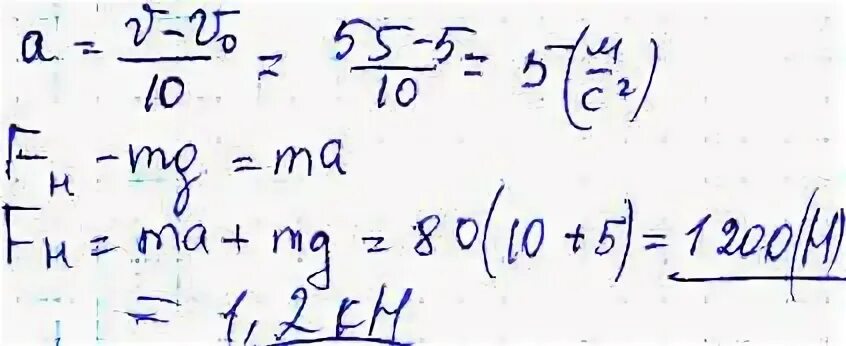 a = (v - v₀)/10 = (55 - 5)/10 = 5 (м/с²)
Fн - mg = ma
Fн = ma + mg = 80(10 + 5) = 1200(Н)
= 1,2 кН